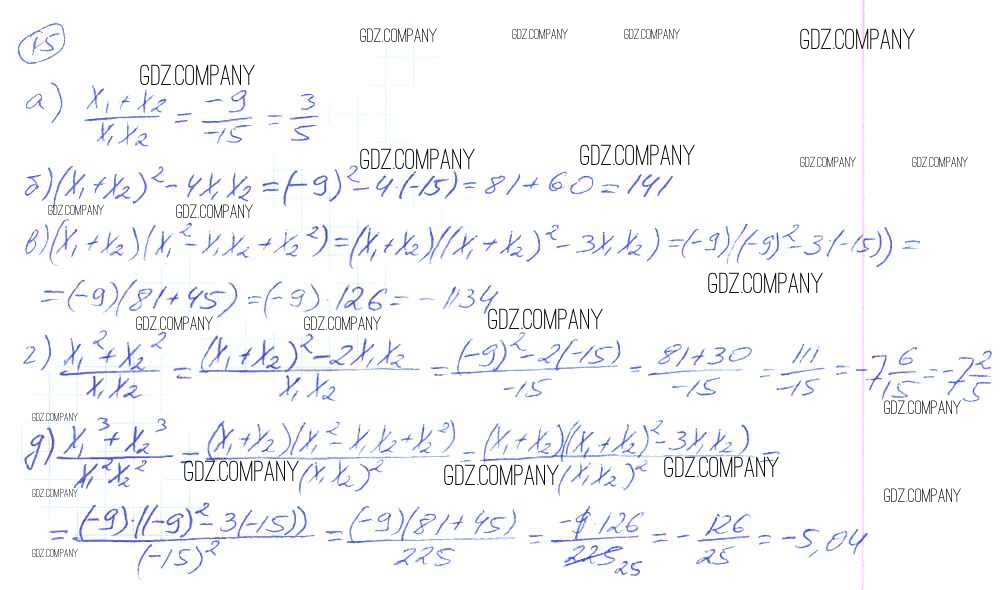 15
GDZ.COMPANY GDZ.COMPANY GDZ.COMPANY GDZ.COMPANY
GDZ.COMPANY
а) (x₁+x₂)/(x₁x₂) = (-9)/(-15) = 3/5
GDZ.COMPANY GDZ.COMPANY GDZ.COMPANY GDZ.COMPANY
б) (x₁+x₂)²-4x₁x₂=(-9)²-4·(-15)=81+60=141
GDZ.COMPANY GDZ.COMPANY
в) (x₁+x₂)(x₁²-x₁x₂+x₂²)=(x₁+x₂)((x₁+x₂)²-3x₁x₂)=(-9)((-9)²-3·(-15))=
GDZ.COMPANY
=(-9)(81+45)=(-9)·126=-1134
GDZ.COMPANY GDZ.COMPANY GDZ.COMPANY
г) (x₁²+x₂²)/(x₁x₂) = ((x₁+x₂)²-2x₁x₂)/(x₁x₂) = ((-9)²-2(-15))/(-15) = (81+30)/(-15) = 111/(-15) = -7 6/15 = -7 2/5
GDZ.COMPANY GDZ.COMPANY
д) (x₁³+x₂³)/(x₁²x₂²) = ((x₁+x₂)(x₁²-x₁x₂+x₂²))/((x₁x₂)²) = ((x₁+x₂)((x₁+x₂)²-3x₁x₂))/((x₁x₂)²) =
GDZ.COMPANY GDZ.COMPANY GDZ.COMPANY
GDZ.COMPANY GDZ.COMPANY
= ((-9)·((-9)²-3(-15)))/((-15)²) = ((-9)(81+45))/225 = (-9·126)/225 25 = -126/25 = -5,04
GDZ.COMPANY